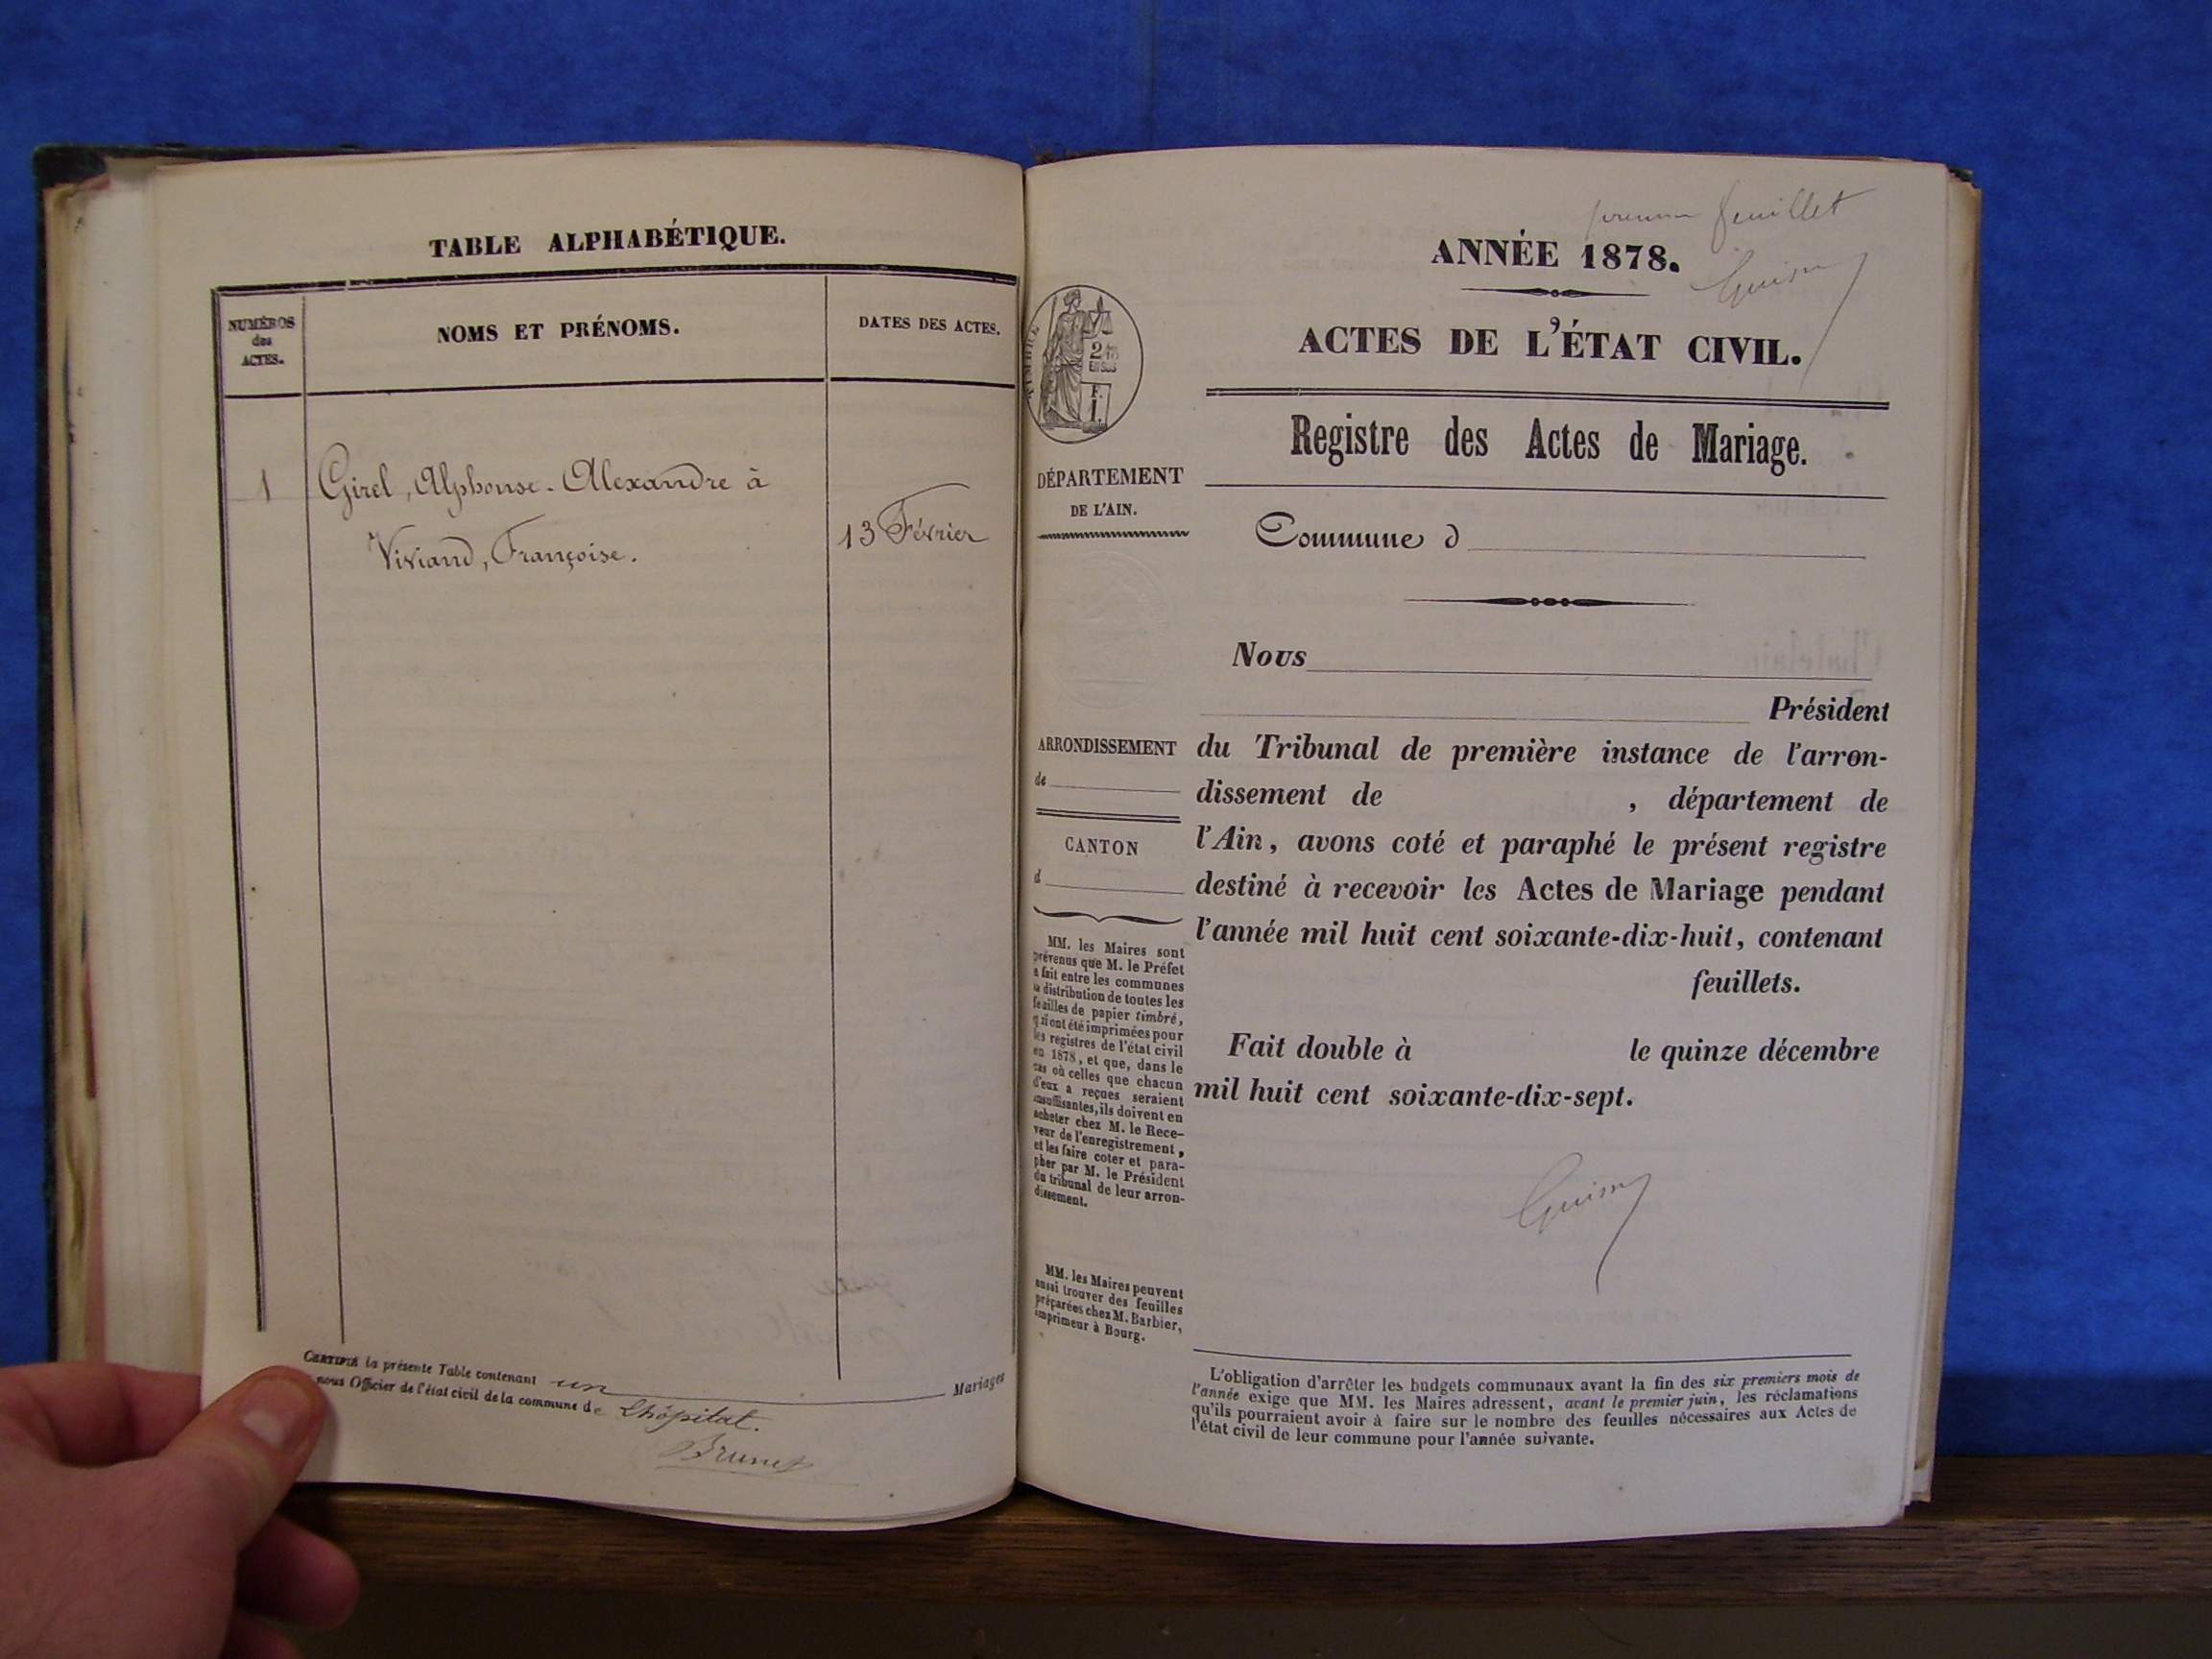 TABLE ALPHABÉTIQUE.
NUMÉROS
des
ACTES.
NOMS ET PRÉNOMS.
DATES DES ACTES.
1
Girel, Alphonse-Alexandre à
Viviand, Françoise.
13 Février
CERTIFIÉ la présente Table contenant un Mariages
nous Officier de l'état civil de la commune de Lhôpital.
Brunet
premier feuillet
ANNÉE 1878.
ACTES DE L'ÉTAT CIVIL.
TIMBRE
2/10
EN SUS
F.
1.
Registre des Actes de Mariage.
DÉPARTEMENT
DE L'AIN.
Commune d
Nous
Président
ARRONDISSEMENT
de
CANTON
d
du Tribunal de première instance de l'arron-
dissement de , département de
l'Ain, avons coté et paraphé le présent registre
destiné à recevoir les Actes de Mariage pendant
l'année mil huit cent soixante-dix-huit, contenant
feuillets.
Fait double à le quinze décembre
mil huit cent soixante-dix-sept.
MM. les Maires sont
prévenus que M. le Préfet
a fait entre les communes
la distribution de toutes les
feuilles de papier timbré,
qui ont été imprimées pour
les registres de l'état civil
en 1878, et que, dans le
cas où celles que chacun
d'eux a reçues seraient
insuffisantes, ils doivent en
acheter chez M. le Rece-
veur de l'enregistrement,
et les faire coter et para-
pher par M. le Président
du tribunal de leur arron-
dissement.
MM. les Maires peuvent
aussi trouver des feuilles
préparées chez M. Barbier,
imprimeur à Bourg.
L'obligation d'arrêter les budgets communaux avant la fin des six premiers mois de
l'année exige que MM. les Maires adressent, avant le premier juin, les réclamations
qu'ils pourraient avoir à faire sur le nombre des feuilles nécessaires aux Actes de
l'état civil de leur commune pour l'année suivante.